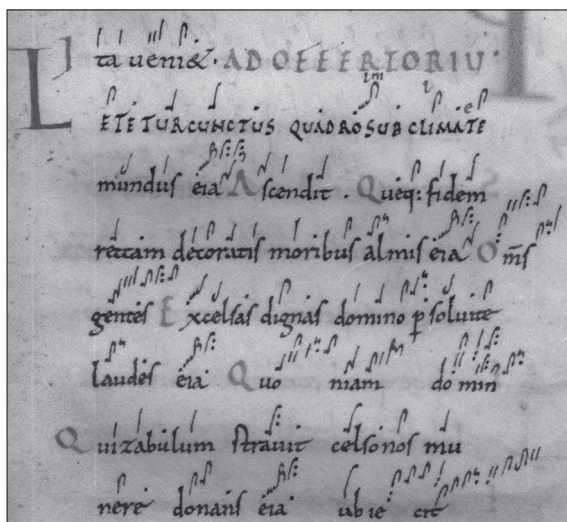 ta ueni&. AD OFFERTORIU.
LETETUR CUNCTUS QUADRO SUB CLIMATE
mundus eia Ascendit. Queq: fidem
rectam decoratis moribus almis eia Om̄s
gentes Excelsas dignas domino p̱ soluite
laudes eia Quo niam do min
Quizabulum strauit celso nos mu
nere donans eia ubi e cit